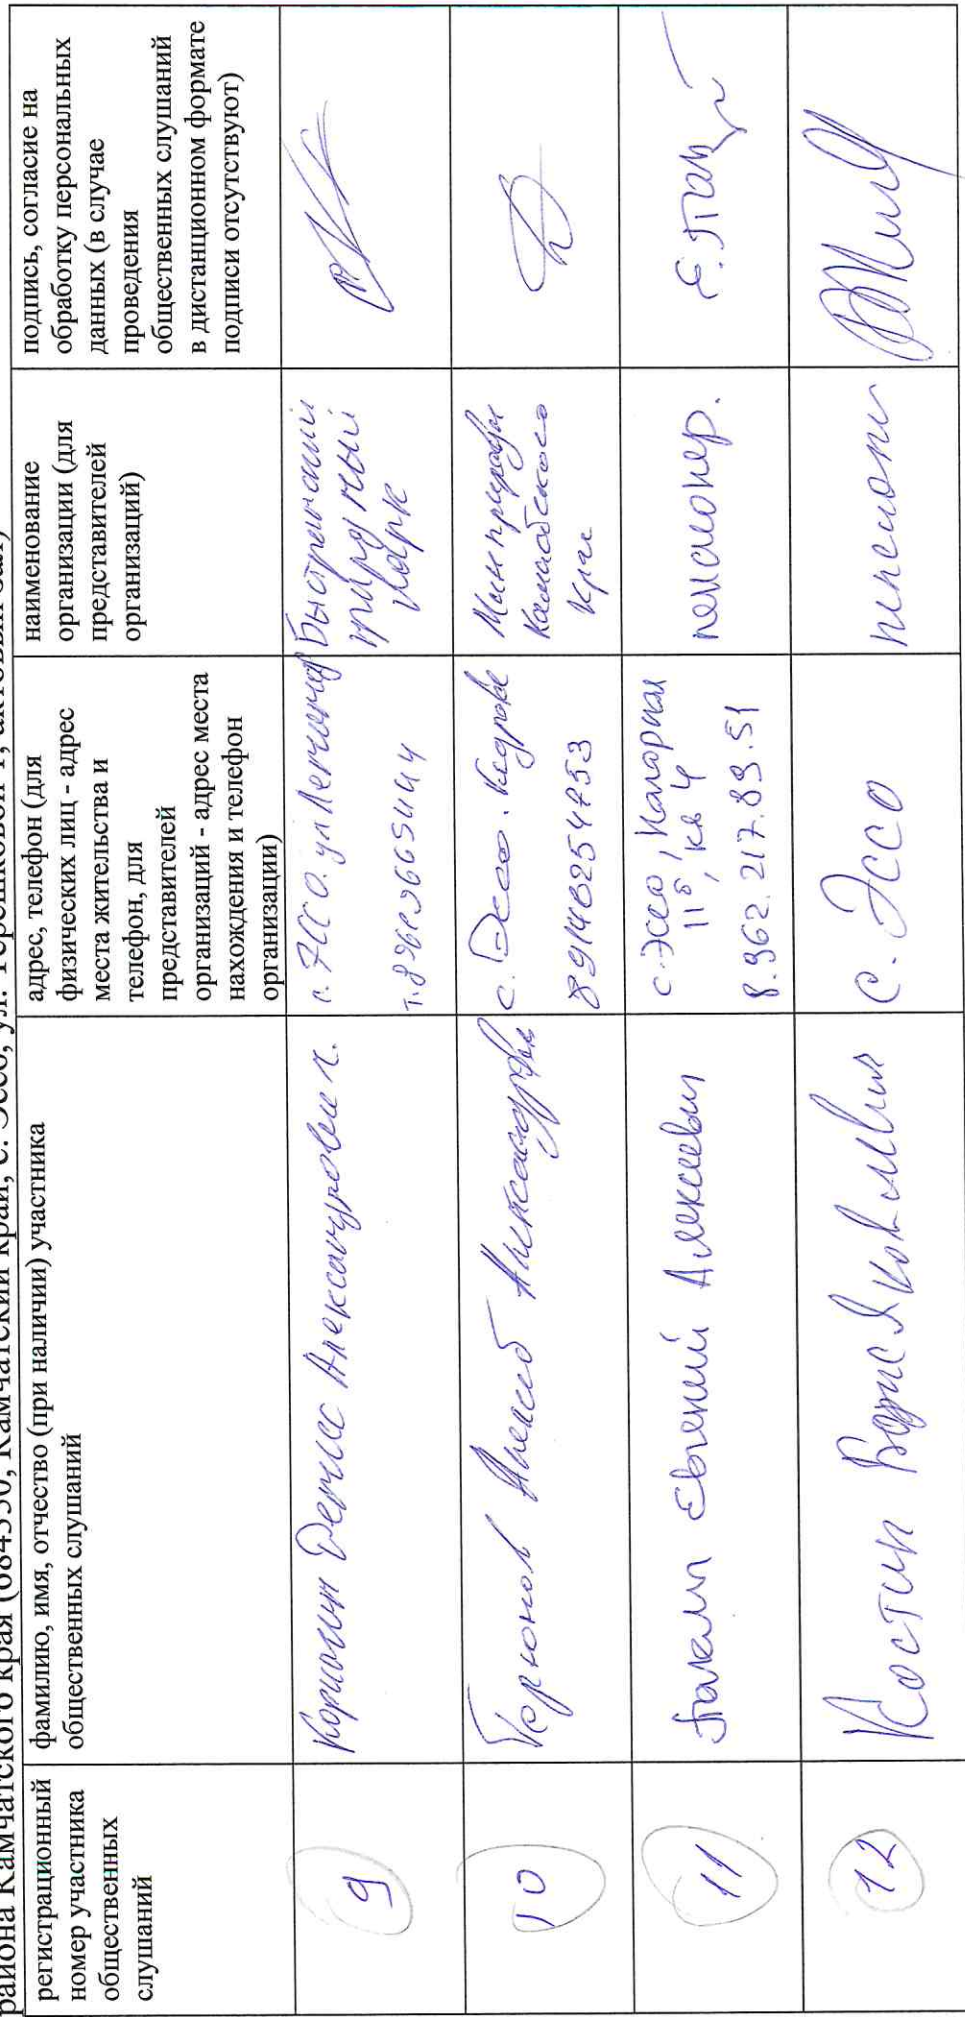 района Камчатского края (684350, Камчатский край, с. Эссо, ул. Терешковой 1, актовый зал)
регистрационный
номер участника
общественных
слушаний
фамилию, имя, отчество (при наличии) участника
общественных слушаний
адрес, телефон (для
физических лиц - адрес
места жительства и
телефон, для
представителей
организаций - адрес места
нахождения и телефон
организации)
наименование
организации (для
представителей
организаций)
подпись, согласие на
обработку персональных
данных (в случае
проведения
общественных слушаний
в дистанционном формате
подписи отсутствуют)
9
Денис Александрович
с. Эссо. ул
Быстринский
природный
парк
10
Александрович
с. Эссо.
89140254753
Минприроды
Камчатского
края
11
Евгений Алексеевич
с. Эссо,
11б, кв 4
8.962.217.89.51
пенсионер.
12
Костин Борис Яковлевич
с. Эссо